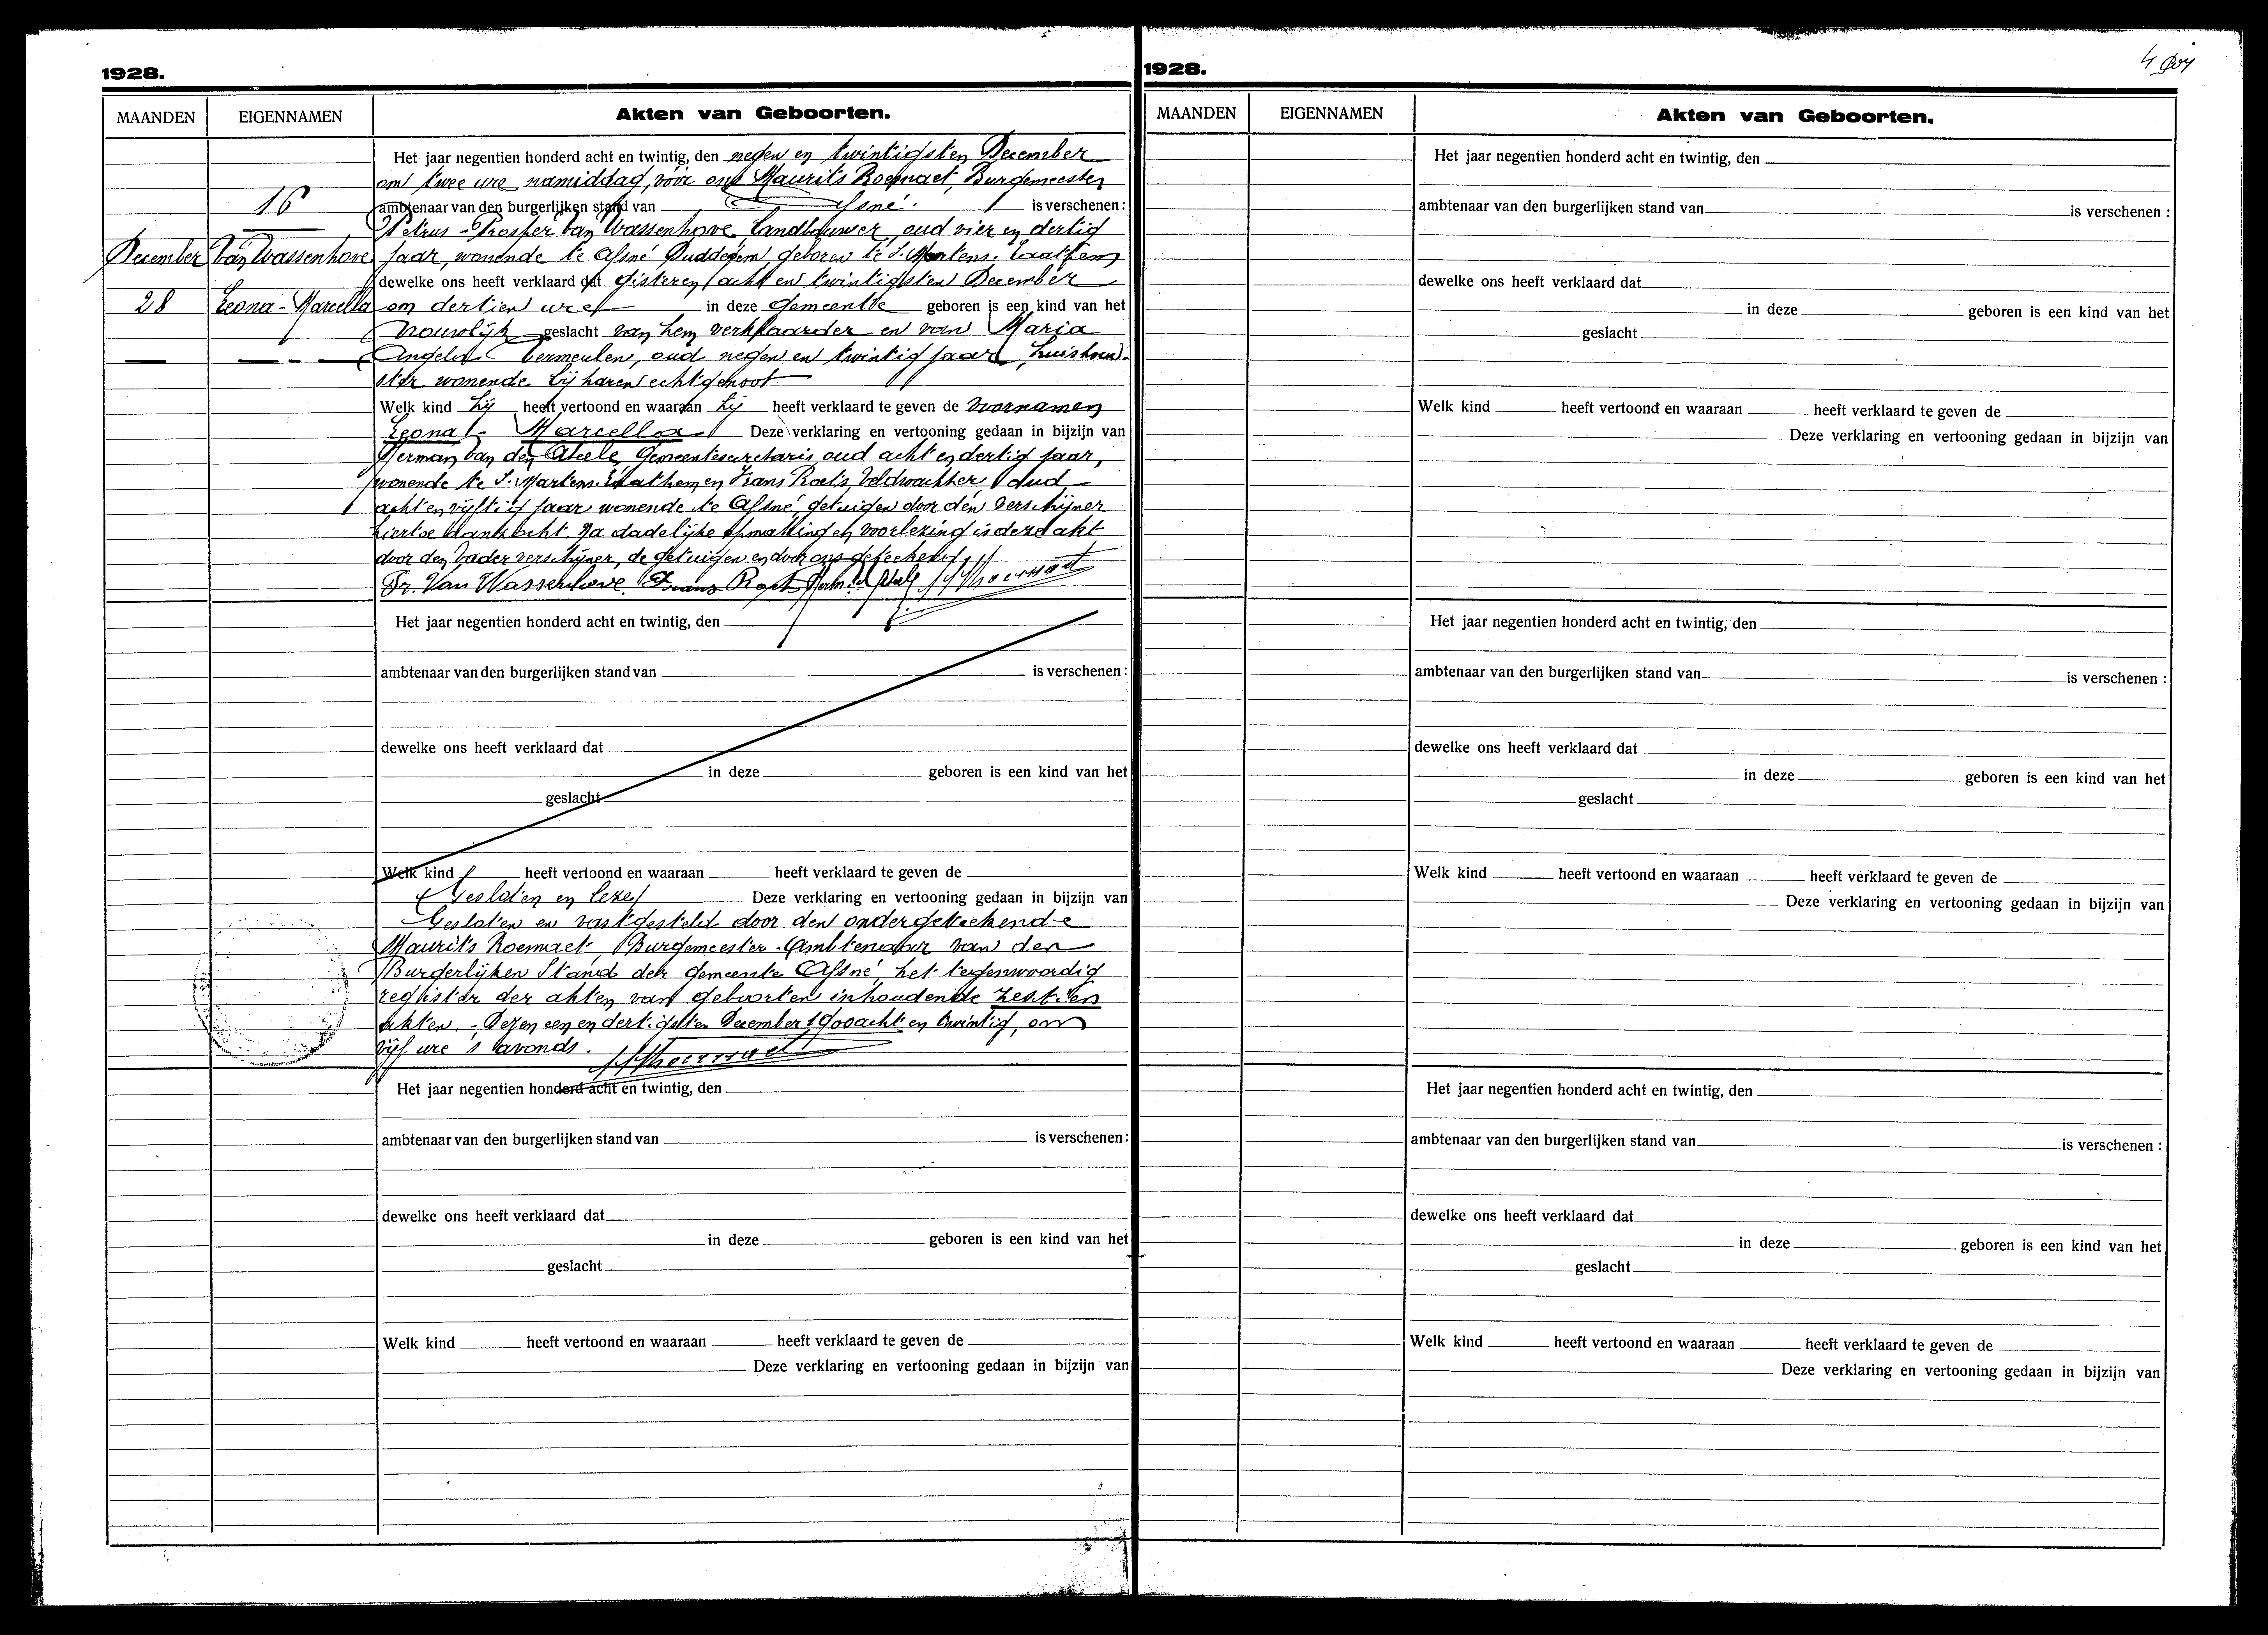 1928.
MAANDEN
EIGENNAMEN
Akten van Geboorten.
16
December
Van Wassenhove
28
Leona - Marcella
Het jaar negentien honderd acht en twintig, den negen en twintigsten December
om twee ure namiddag, vóór ons Maurits Roemaet, Burgemeester
ambtenaar van den burgerlijken stand van Afsné. is verschenen :
Petrus - Prosper Van Wassenhove, Landbouwer, oud vier en dertig
jaar, wonende te Afsné geboren te S. Martens. Laathem
dewelke ons heeft verklaard dat gisteren acht en twintigsten December
om dertien ure in deze gemeente geboren is een kind van het
Vrouwlijk geslacht van hem verklaarder en van Maria
Angela Vermeulen, oud negen en twintig jaar, huishoud-
ster wonende bij haren echtgenoot
Welk kind hij heeft vertoond en waaraan hij heeft verklaard te geven de voornamen
Leona - Marcella Deze verklaring en vertooning gedaan in bijzijn van
Herman Van den Abeele, Gemeentesecretaris oud acht en dertig jaar,
wonende te S. Martens. Laathem en Frans Roets, Veldwachter oud
acht en vijftig jaar wonende te Afsné, getuigen door den verschijner
hiertoe aanzocht. Na dadelijke opmaking en voorlezing is deze akt
door den Vader verschijner, de getuigen en door ons geteekend.
Pr. Van Wassenhove. Frans Roets
Het jaar negentien honderd acht en twintig, den
ambtenaar van den burgerlijken stand van is verschenen :
dewelke ons heeft verklaard dat
in deze geboren is een kind van het
geslacht
Welk kind heeft vertoond en waaraan heeft verklaard te geven de
Gesloten en Deze verklaring en vertooning gedaan in bijzijn van
Gesloten en vastgesteld door den ondergeteekende
Maurits Roemaet, Burgemeester. Ambtenaar van den
Burgerlijken Stand der gemeente Afsné, het tegenwoordig
register der akten van geboorten inhoudende zestien
akten. - Dezen een en dertigsten December 1900 acht en twintig, om
vijf ure 's avonds.
Het jaar negentien honderd acht en twintig, den
ambtenaar van den burgerlijken stand van is verschenen :
dewelke ons heeft verklaard dat
in deze geboren is een kind van het
geslacht
Welk kind heeft vertoond en waaraan heeft verklaard te geven de
Deze verklaring en vertooning gedaan in bijzijn van
1928.
MAANDEN
EIGENNAMEN
Akten van Geboorten.
Het jaar negentien honderd acht en twintig, den
ambtenaar van den burgerlijken stand van is verschenen :
dewelke ons heeft verklaard dat
in deze geboren is een kind van het
geslacht
Welk kind heeft vertoond en waaraan heeft verklaard te geven de
Deze verklaring en vertooning gedaan in bijzijn van
Het jaar negentien honderd acht en twintig, den
ambtenaar van den burgerlijken stand van is verschenen :
dewelke ons heeft verklaard dat
in deze geboren is een kind van het
geslacht
Welk kind heeft vertoond en waaraan heeft verklaard te geven de
Deze verklaring en vertooning gedaan in bijzijn van
Het jaar negentien honderd acht en twintig, den
ambtenaar van den burgerlijken stand van is verschenen :
dewelke ons heeft verklaard dat
in deze geboren is een kind van het
geslacht
Welk kind heeft vertoond en waaraan heeft verklaard te geven de
Deze verklaring en vertooning gedaan in bijzijn van